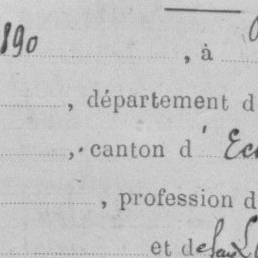 190 , à
, département d
, canton d' Ec
, profession d
et de